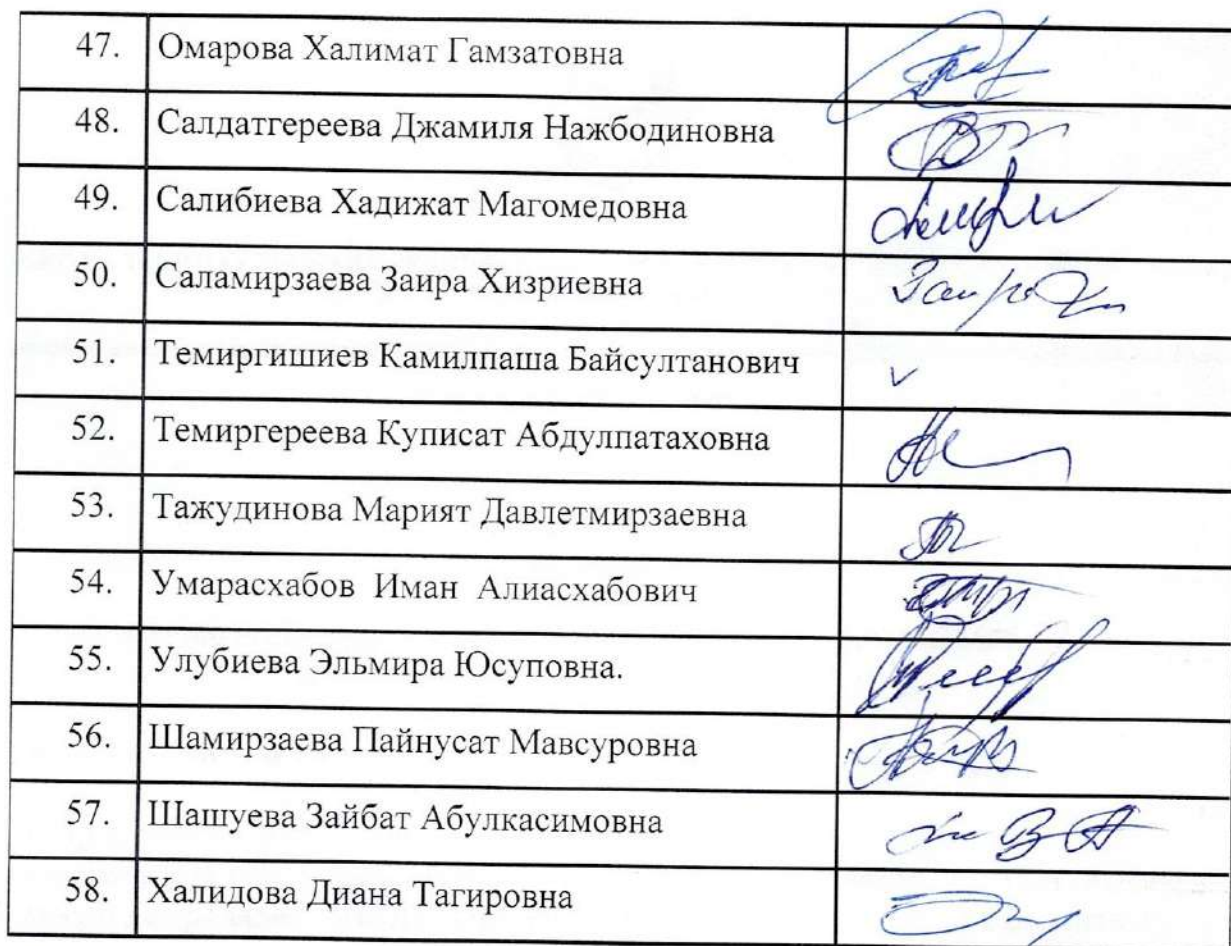 47. Омарова Халимат Гамзатовна
48. Салдатгереева Джамиля Нажбодиновна
49. Салибиева Хадижат Магомедовна
50. Саламирзаева Заира Хизриевна
51. Темиргишиев Камилпаша Байсултанович
52. Темиргереева Куписат Абдулпатаховна
53. Тажудинова Марият Давлетмирзаевна
54. Умарасхабов Иман Алиасхабович
55. Улубиева Эльмира Юсуповна.
56. Шамирзаева Пайнусат Мавсуровна
57. Шашуева Зайбат Абулкасимовна
58. Халидова Диана Тагировна